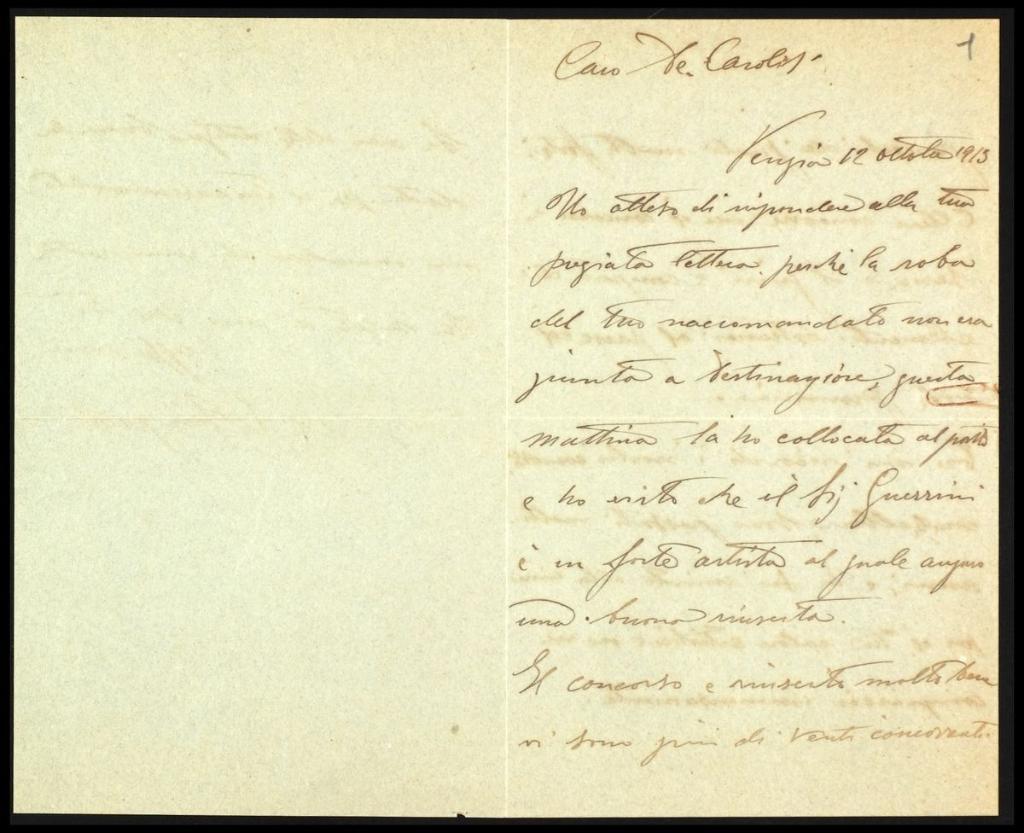 1
Caro De Carolis
Perugia 12 ottobre 1913
Ho atteso di rispondere alla tua
pregiata lettera perchè la roba
del tuo raccomandato non era
giunta a destinazione, questa
mattina la ho collocata al posto
e ho visto che il Sig Guerrini
è un forte artista al quale auguro
una buona riuscita.
Il concorso e riuscito molto bene
vi sono più di venti concorrenti